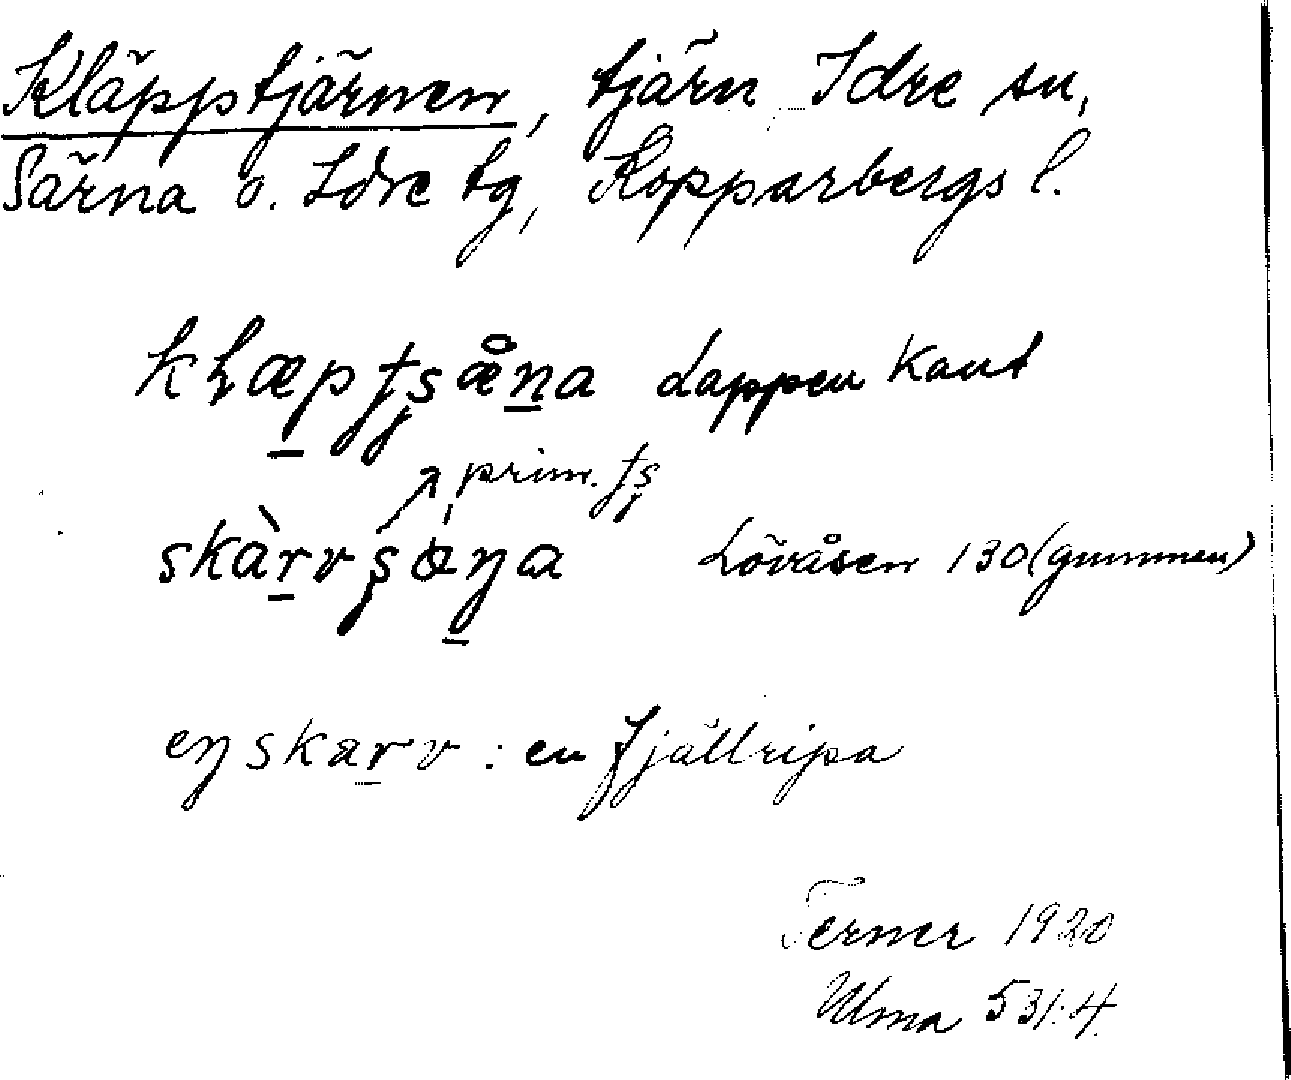 Kläpptjärnen, tjärn Idre sn,
Särna o. Idre tg, Kopparbergs l.
kḷæpʈʂæ̊na Lappen Kant
prim. ʈʂ
skàrvʂáŋa Lövåsen 130 (gummen)
eŋ skarv : en fjällripa
Terner 1920
Ulma 531:4.